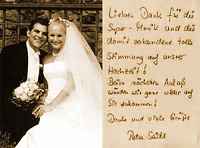 Lieben Dank für die
Super-Musik und die
damit verbundene tolle
Stimmung auf unser
Hochzeit!
Beim nächsten Anlaß
würden wir gern wieder auf
Sie zukommen!
Danke und viele Grüße
Petra